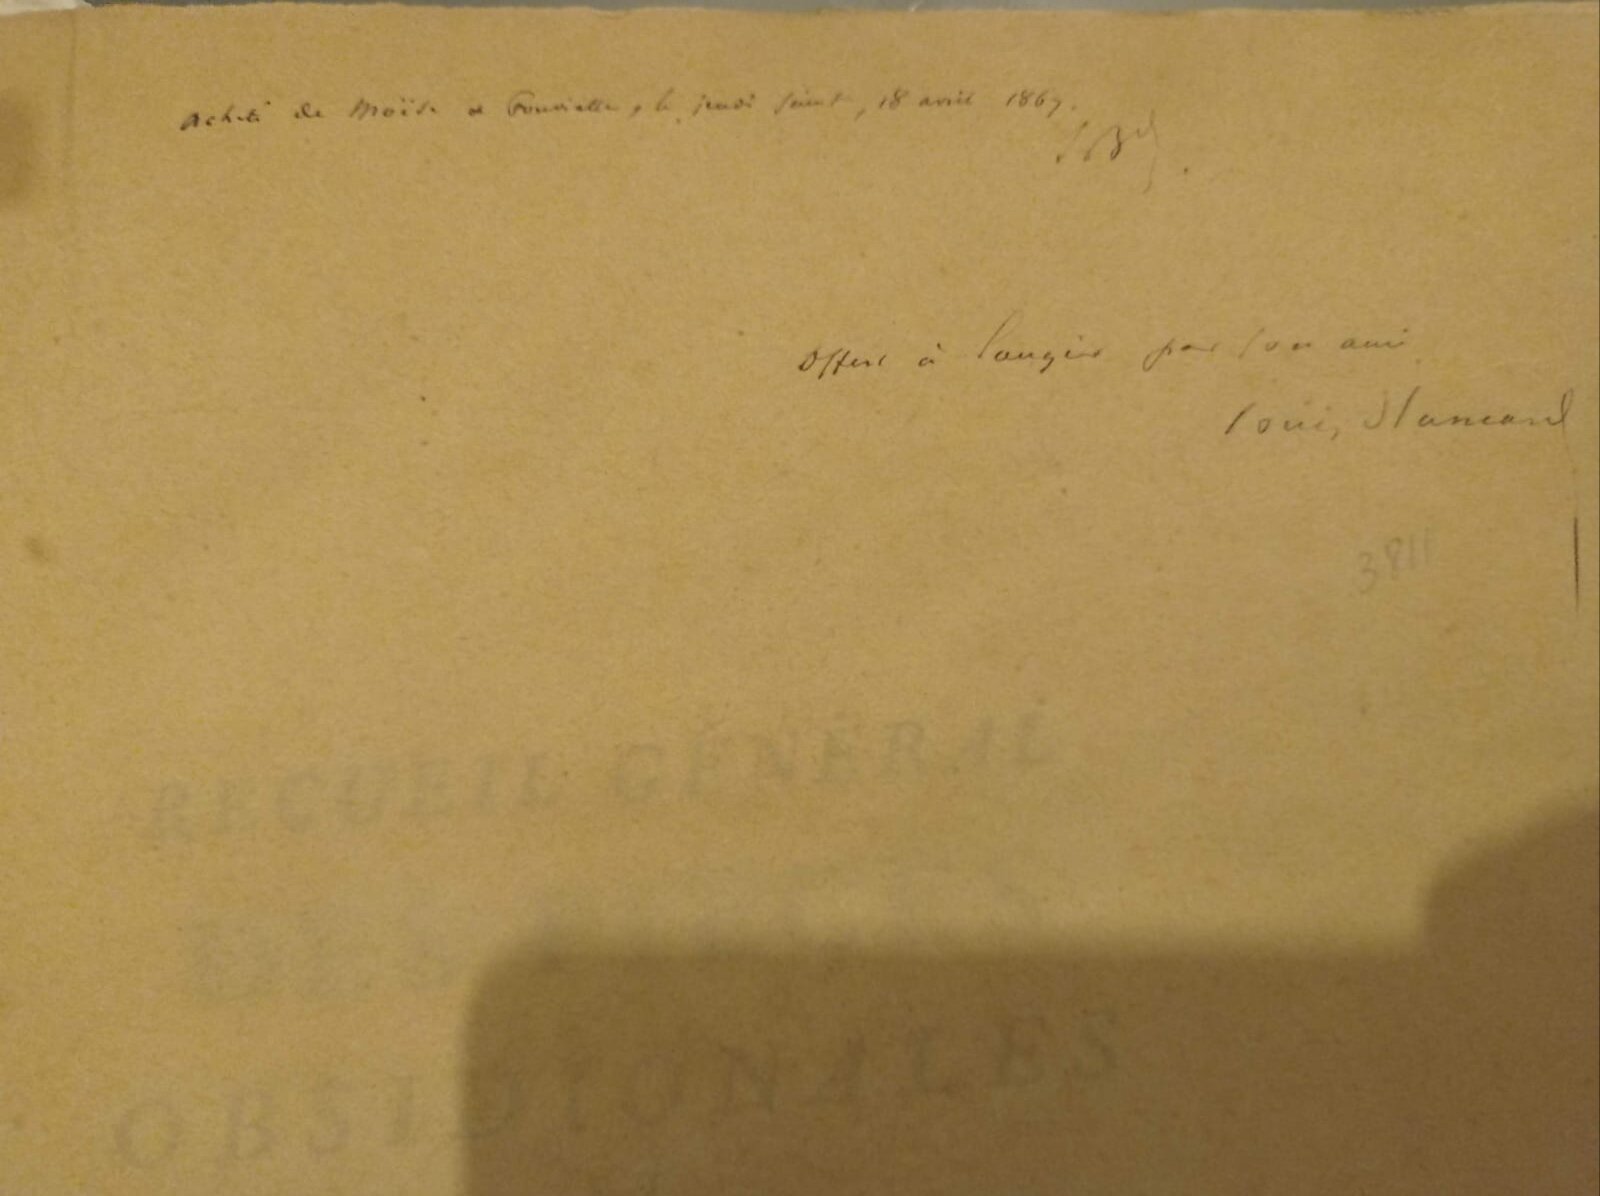 Acheté de Moïse de Fourvielle, le jeudi saint, 18 avril 1867.
Offert à Laugier par son ami
Louis Blancard
3811
RECUEIL GÉNÉRAL
OBSIDIONALES